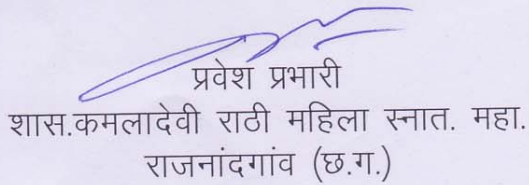 प्रवेश प्रभारी
शास.कमलादेवी राठी महिला स्नात. महा.
राजनांदगांव (छ.ग.)